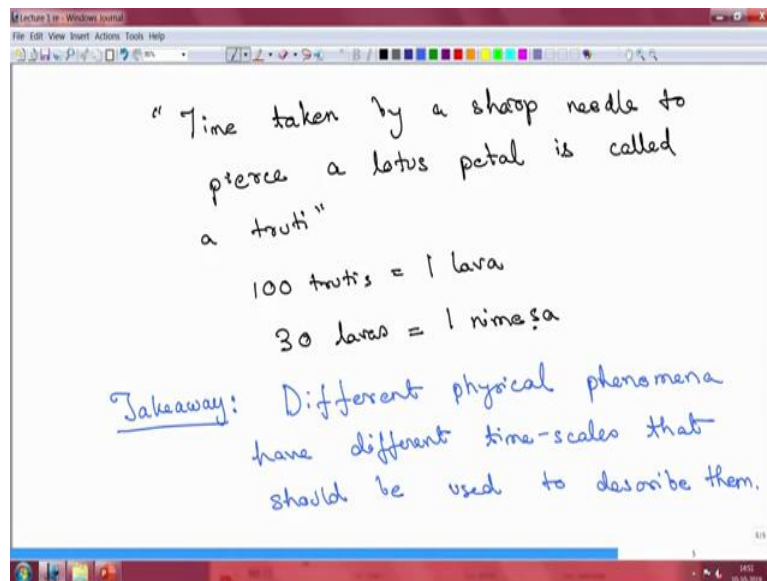 Lecture 1 re - Windows Journal
File Edit View Insert Actions Tools Help
" Time taken by a sharp needle to
pierce a lotus petal is called
a truti"
100 trutis = 1 lava
30 lavas = 1 nimeṣa
Takeaway: Different physical phenomena
have different time-scales that
should be used to describe them.
5
14:52